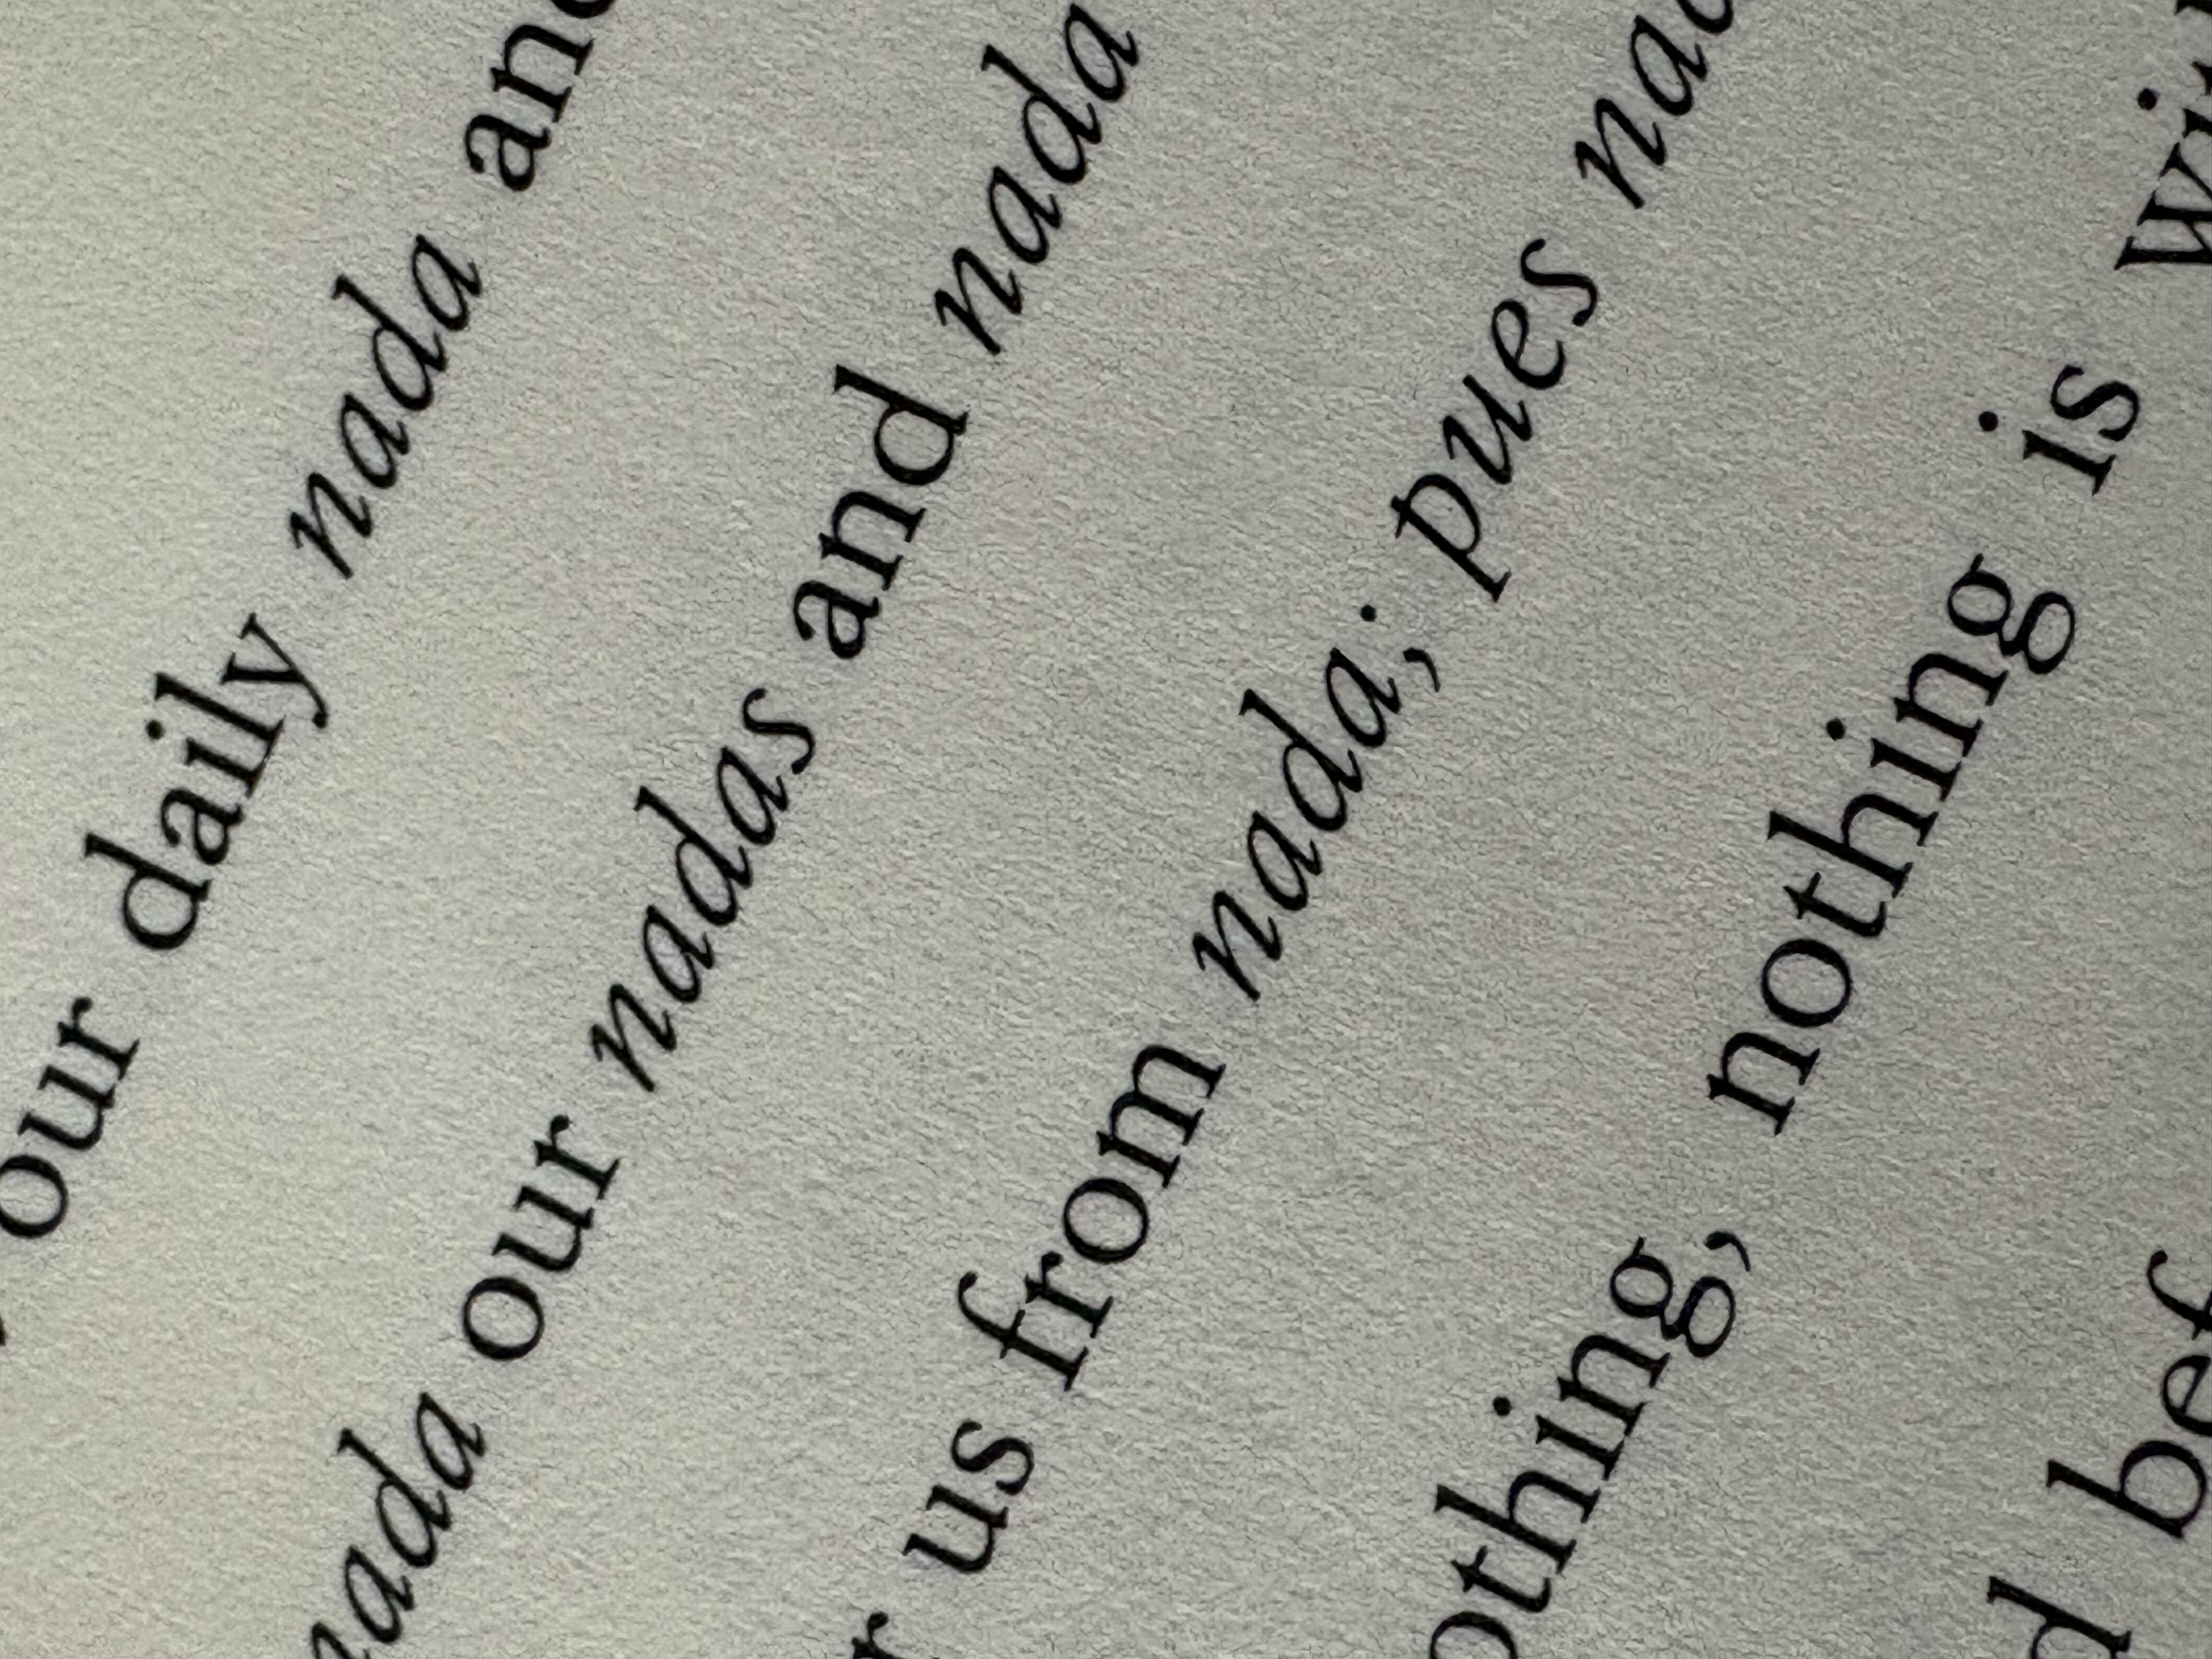 our daily nada and
nada our nadas and nada
us from nada; pues nad
othing, nothing is wit
d bef